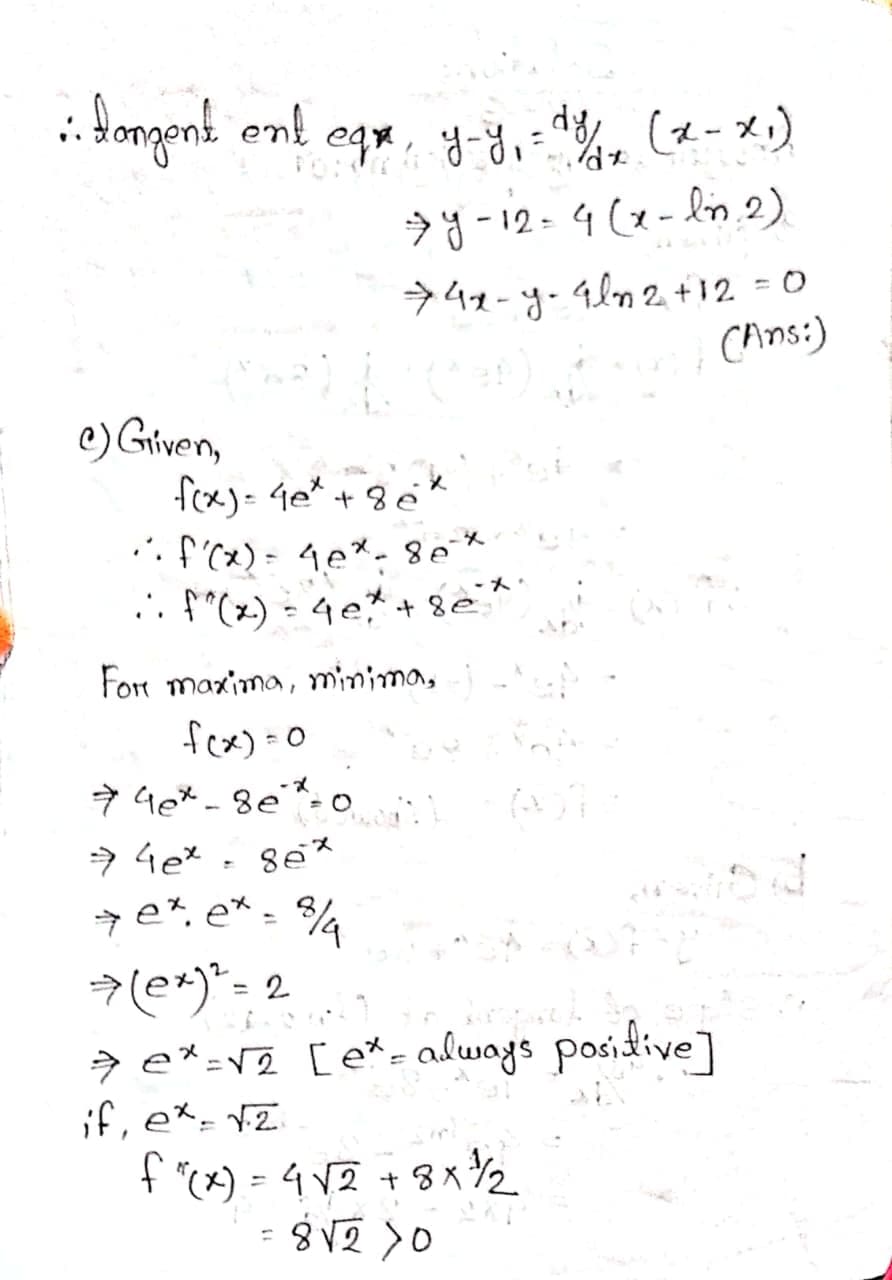 ∴ tangent ent eqn, y-y₁ = dy/dx (x-x₁)
⇒ y-12 = 4(x-ln 2)
⇒ 4x-y-4ln2+12 = 0
(Ans:)
c) Given,
f(x) = 4eˣ + 8e⁻ˣ
∴ f'(x) = 4eˣ - 8e⁻ˣ
∴ f''(x) = 4eˣ + 8e⁻ˣ
For maxima, minima,
f(x) = 0
⇒ 4eˣ - 8e⁻ˣ = 0
⇒ 4eˣ = 8e⁻ˣ
⇒ eˣ. eˣ = 8/4
⇒ (eˣ)² = 2
⇒ eˣ = √2 [eˣ = always positive]
if, eˣ = √2
f''(x) = 4√2 + 8 x 1/2
= 8√2 >0